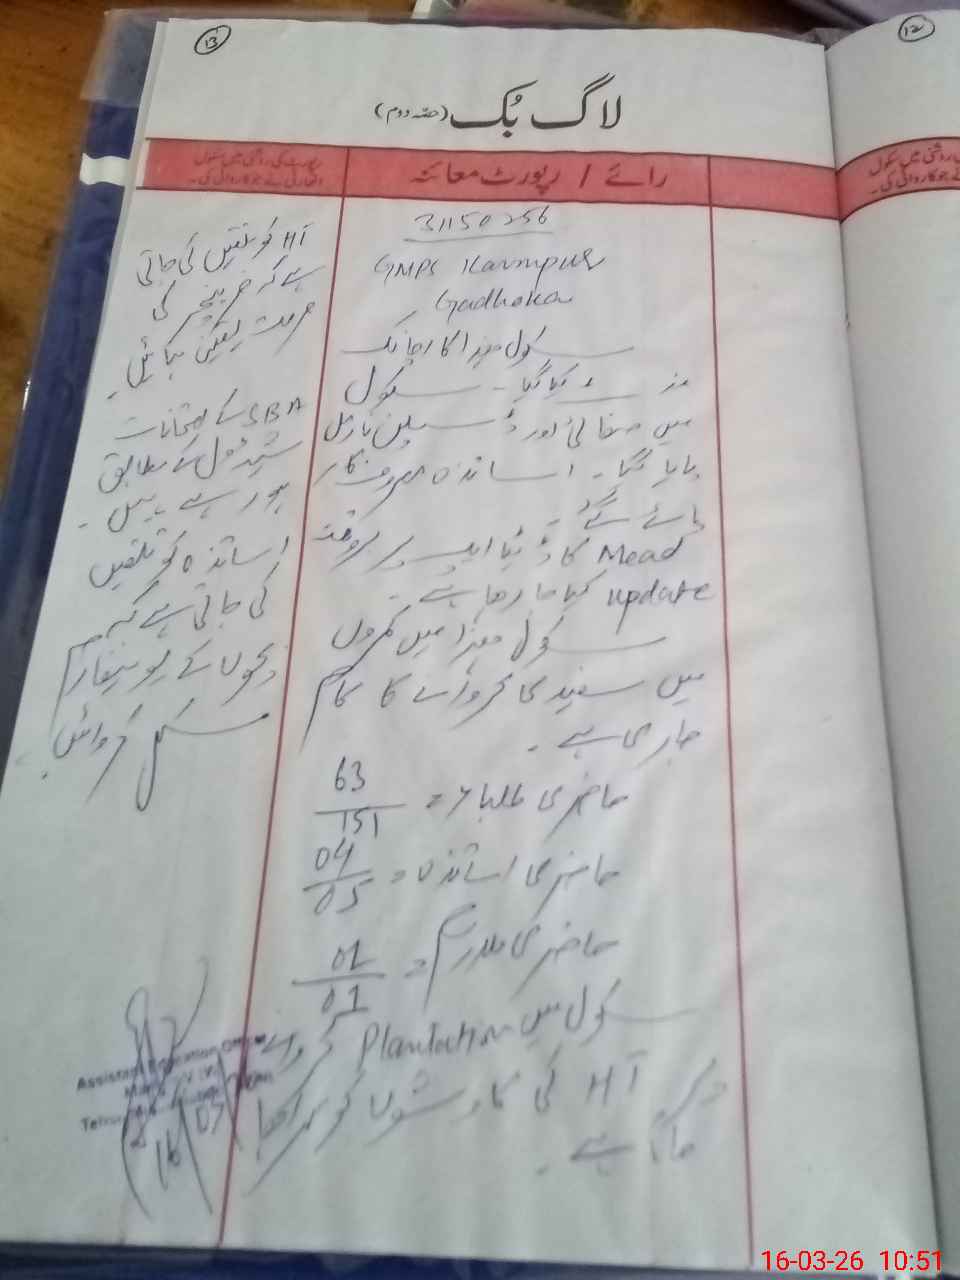 13
12
لاگ بُک (حصّہ دوم)
رائے / رپورٹ معائنہ
رپورٹ کی روشنی میں سکول
اتھارٹی نے جو کارروائی کی۔
روشنی میں سکول
نے جو کارروائی کی۔
31150256
GMPS Karimpur
Gadhoka
سکول ہذا کا اچانک
وزٹ کیا گیا۔ سکول
میں صفائی اور ڈسپلن نارمل
پایا گیا۔ اساتذہ مصروف کار
پائے گئے۔
Mead کا ڈیٹا ایپ پر بروقت
update کیا جا رہا ہے۔
سکول ہذا میں کمروں
میں سفیدی کروانے کا کام
جاری ہے۔
حاضری طلباء = 63/151
حاضری اساتذہ = 04/05
حاضری ملازم = 01/01
سکول میں Plantation کروانے
پر HT کی کاوشوں کو سراہا
جاتا ہے۔
HT کو تلقین کی جاتی
ہے کہ فرنیچر کی
مرمت یقینی بنائیں۔
SBA کے امتحانات
شیڈول کے مطابق
ہو رہے ہیں۔
اساتذہ کو تلقین
کی جاتی ہے کہ
بچوں کے یونیفارم
مکمل کروائیں۔
Assistant Education Officer
16
16-03-26 10:51